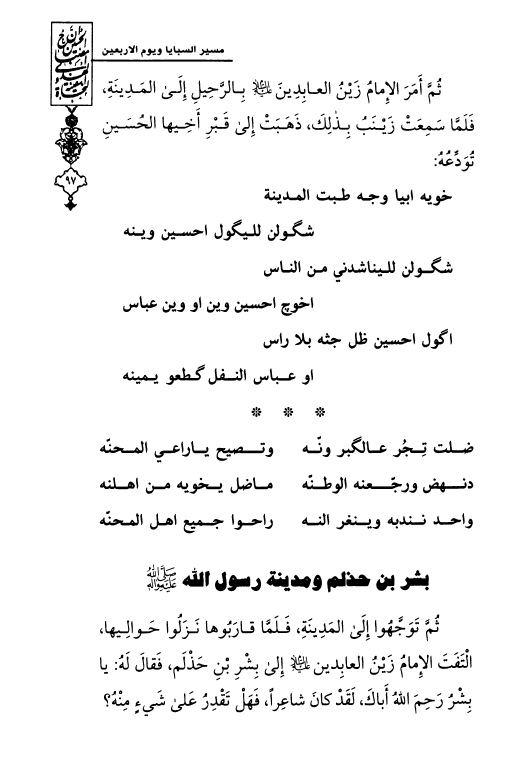 مسير السبايا ويوم الاربعين
٩٧
ثُمَّ أَمَرَ الإِمامُ زَيْنُ العابِدِينَ عليه السلام بِالرَّحِيلِ إِلَىٰ المَدِينَةِ،
فَلَمَّا سَمِعَتْ زَيْنَبُ بِذٰلِكَ، ذَهَبَتْ إِلىٰ قَبْرِ أَخِيها الحُسَينِ
تُوَدِّعُهُ:
خويه ابيا وجه طبت المدينة
شگولن لليگول احسين وينه
شگولن لليناشدني من الناس
اخوچ احسين وين او وين عباس
اگول احسين ظل جثه بلا راس
او عباس النفل گطعو يمينه
* * *
ضلت تِجُر عالگبر ونّه وتصيح ياراعي المحنّه
دنهض ورجّعنه الوطنّه ماضل يخويه من اهلنه
واحد نندبه وينغر النه راحوا جميع اهل المحنّه
بشر بن حذلم ومدينة رسول الله ﷺ
ثُمَّ تَوَجَّهُوا إِلَىٰ المَدِينَةِ، فَلَمَّا قارَبُوها نَزَلُوا حَوالِيها،
الْتَفَتَ الإِمامُ زَيْنُ العابِدِين عليه السلام إِلىٰ بِشْرِ بْنِ حَذْلَم، فَقالَ لَهُ: يا
بِشْرُ رَحِمَ اللهُ أَباكَ، لَقَدْ كانَ شاعِراً، فَهَلْ تَقْدِرُ عَلىٰ شَيءٍ مِنْهُ؟